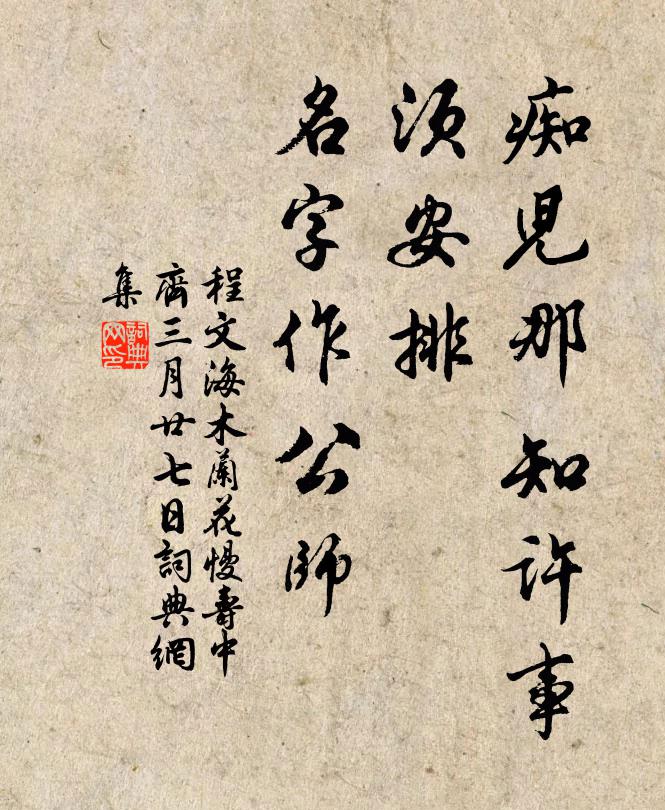 痴児那知許事
須安排
名字作公師
程文海木蘭花慢壽中
齋三月廿七日詞典網
集
詞典網印